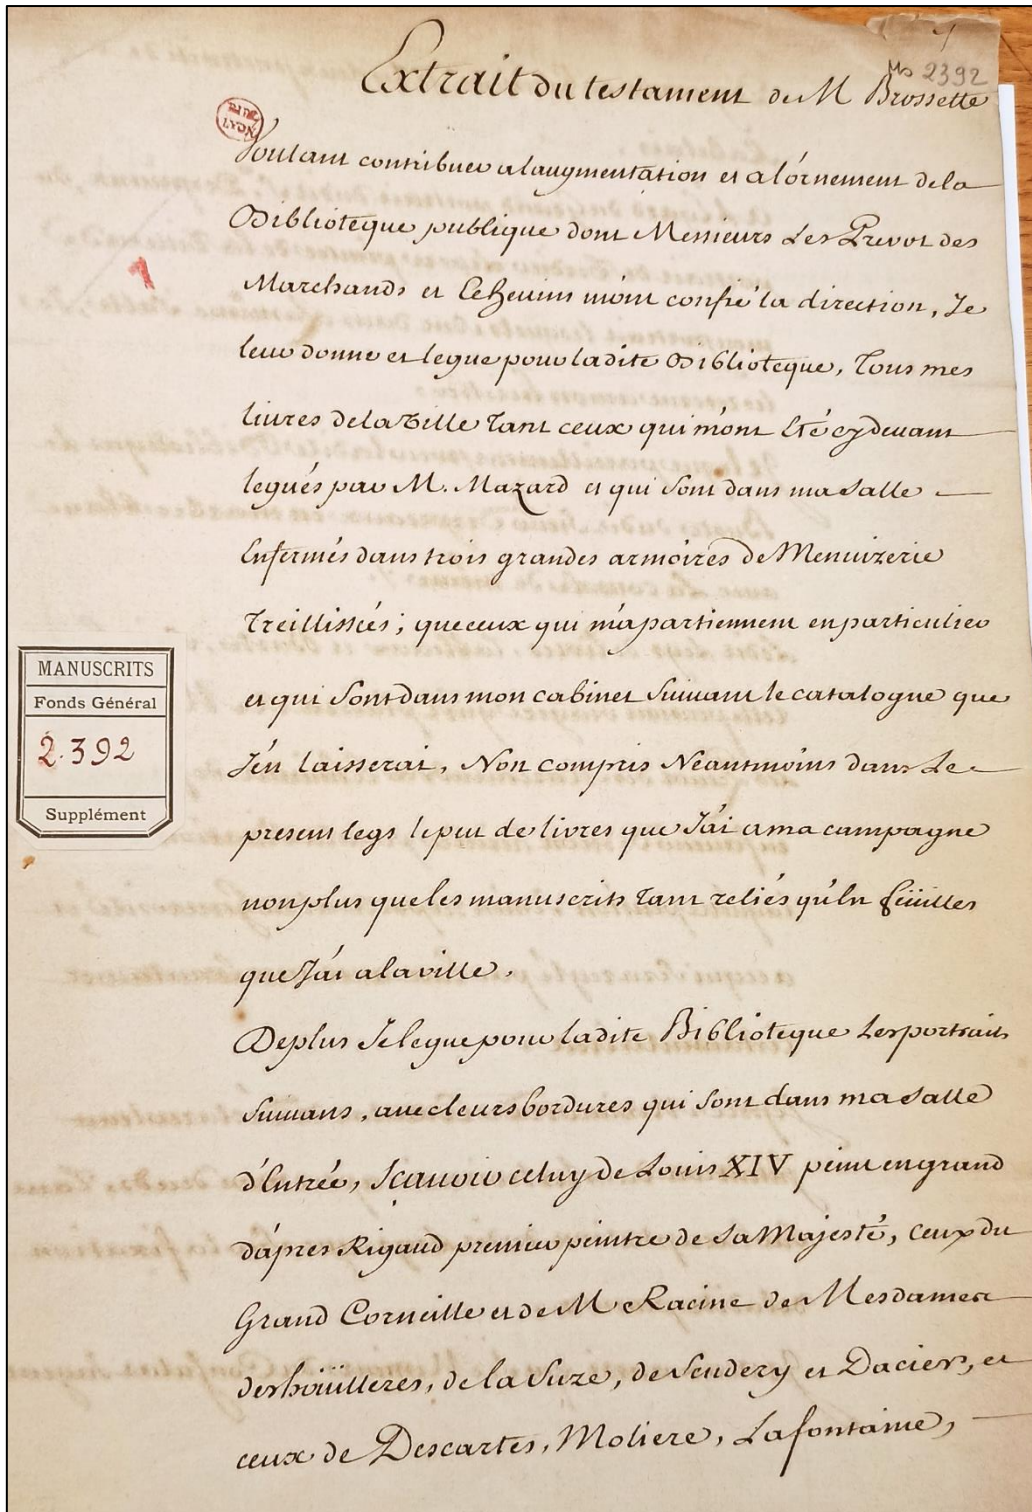 Ms 2392
Extrait du testament de M Brossette
Voulant contribuer a laugmentation et a l'ornement de la
Biblioteque publique dont Messieurs Les Prevot des
Marchands et Echevins m'ont confié la direction, Je
leur donne et legue pour ladite Biblioteque, Tous mes
livres de la Ville Tant ceux qui m'ont Eté cy devant
legués par M. Mazard et qui sont dans ma salle
Enfermés dans trois grandes armoires de Menuizerie
Treillissées; que ceux qui m'apartiennent en particulier
et qui sont dans mon cabinet suivant le catalogue que
J'en laisserai, Non compris Neantmoins dans Le
present legs le peu de livres que J'ai a ma campagne
non plus que les manuscrits Tant reliés qu'En feüilles
que J'ai a la ville.
De plus Je legue pour ladite Biblioteque Les portraits
suivans, avec leurs bordures qui sont dans ma salle
d'Entrée, Scavoir celuy de Louis XIV peint en grand
d'apres Rigaud premier peintre de sa Majesté, ceux du
Grand Corneille et de M Racine de Mesdames
deshoüilleres, de la Suze, de Scudery et Dacier, et
ceux de Descartes, Moliere, Lafontaine,
MANUSCRITS
Fonds Général
2.392
Supplément
1
LYON